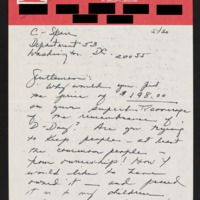 C-Span 5/20
Department 53
Washington DC 20055
Gentlemen:
Why would you put
the price of $198.00
on your Superb! coverage
of the remembrance of
D-Day? Are you trying
to keep people - at least
the common people -
from ownership? Now I
would like to have
owned it - and passed
it on to my children